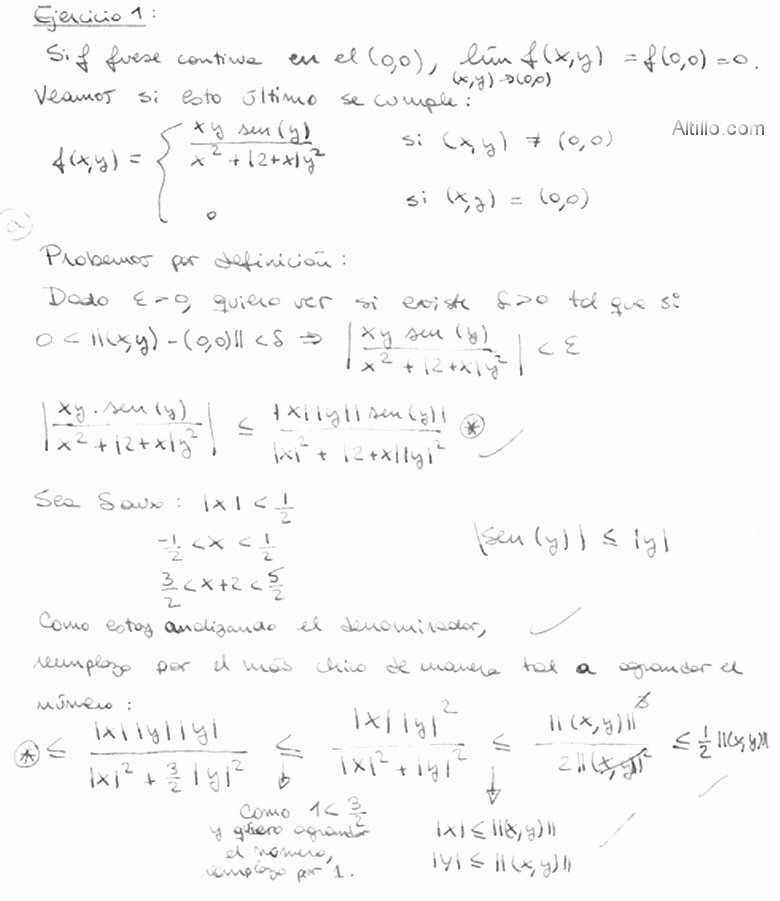 Ejercicio 1:
Si f fuese continua en el (0,0), lím f(x,y) = f(0,0) = 0.
(x,y)→(0,0)
Veamos si esto último se cumple:
Altillo.com
f(x,y) = { xy sen(y) / x² + |2+x|y² si (x,y) ≠ (0,0)
0 si (x,y) = (0,0)
a)
Probemos por definición:
Dado ε>0, quiero ver si existe δ>0 tal que si
0 < ||(x,y) - (0,0)|| < δ ⇒ | xy sen(y) / x² + |2+x|y² | < ε
| xy.sen(y) / x² + |2+x|y² | ≤ |x||y||sen(y)| / |x|² + |2+x||y|² (*) ✓
Sea δaux: |x| < 1/2
-1/2 < x < 1/2
|sen(y)| ≤ |y|
3/2 < x+2 < 5/2
Como estoy analizando el denominador, ✓
reemplazo por el más chico de manera tal a agrandar el
número:
(*) ≤ |x||y||y| / |x|² + 3/2 |y|² ≤ |x||y|² / |x|² + |y|² ≤ ||(x,y)||³ / 2||(x,y)||² ≤ 1/2 ||(x,y)||
Como 1 < 3/2
y quiero agrandar
el número,
reemplazo por 1.
|x| ≤ ||(x,y)||
|y| ≤ ||(x,y)||